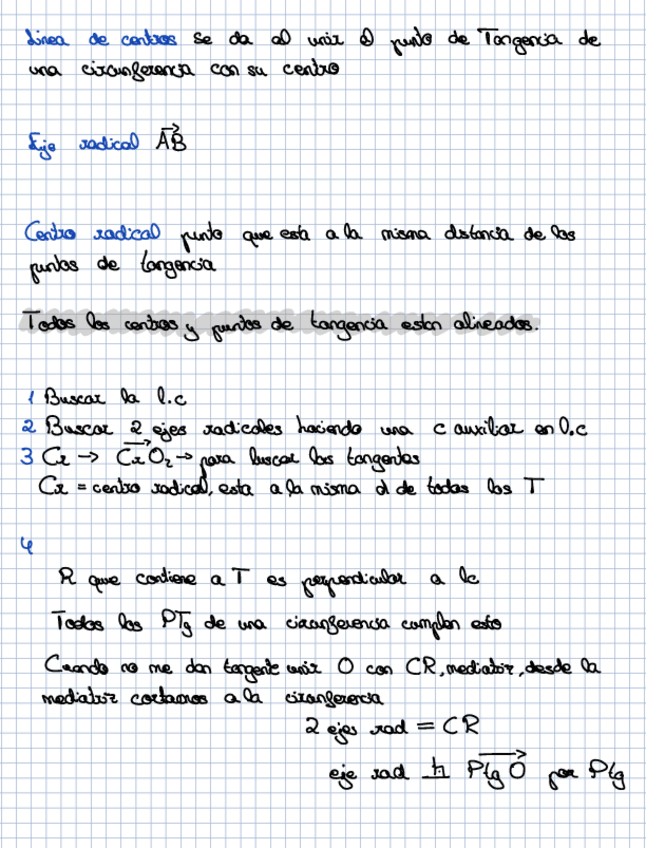 Linea de centros se da al unir el punto de Tangencia de
una circunferencia con su centro
Eje radical AB
Centro radical punto que esta a la misma distancia de los
puntos de tangencia
Todos los centros y puntos de tangencia estan alineados.
1 Buscar la l.c
2 Buscar 2 ejes radicales haciendo una c auxiliar en l.c
3 Cr → CrO₂ → para buscar las tangentes
Cr = centro radical, esta a la misma d de todas los T
4
R que contiene a T es perpendicular a lc
Todos los PTg de una circunferencia cumplen esto
Cuando no me dan tangente unir O con CR, mediatriz, desde la
mediatriz cortamos a la circunferencia
2 ejes rad = CR
eje rad ⊥ Ptg O por Ptg